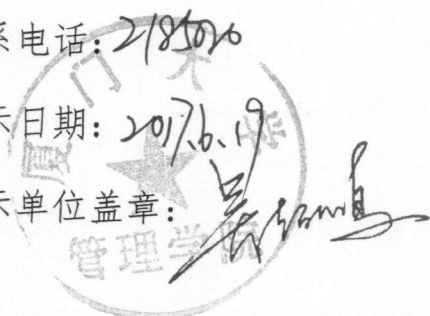 系电话：2185020
示日期：2017.6.19
示单位盖章：
厦门大学
管理学院